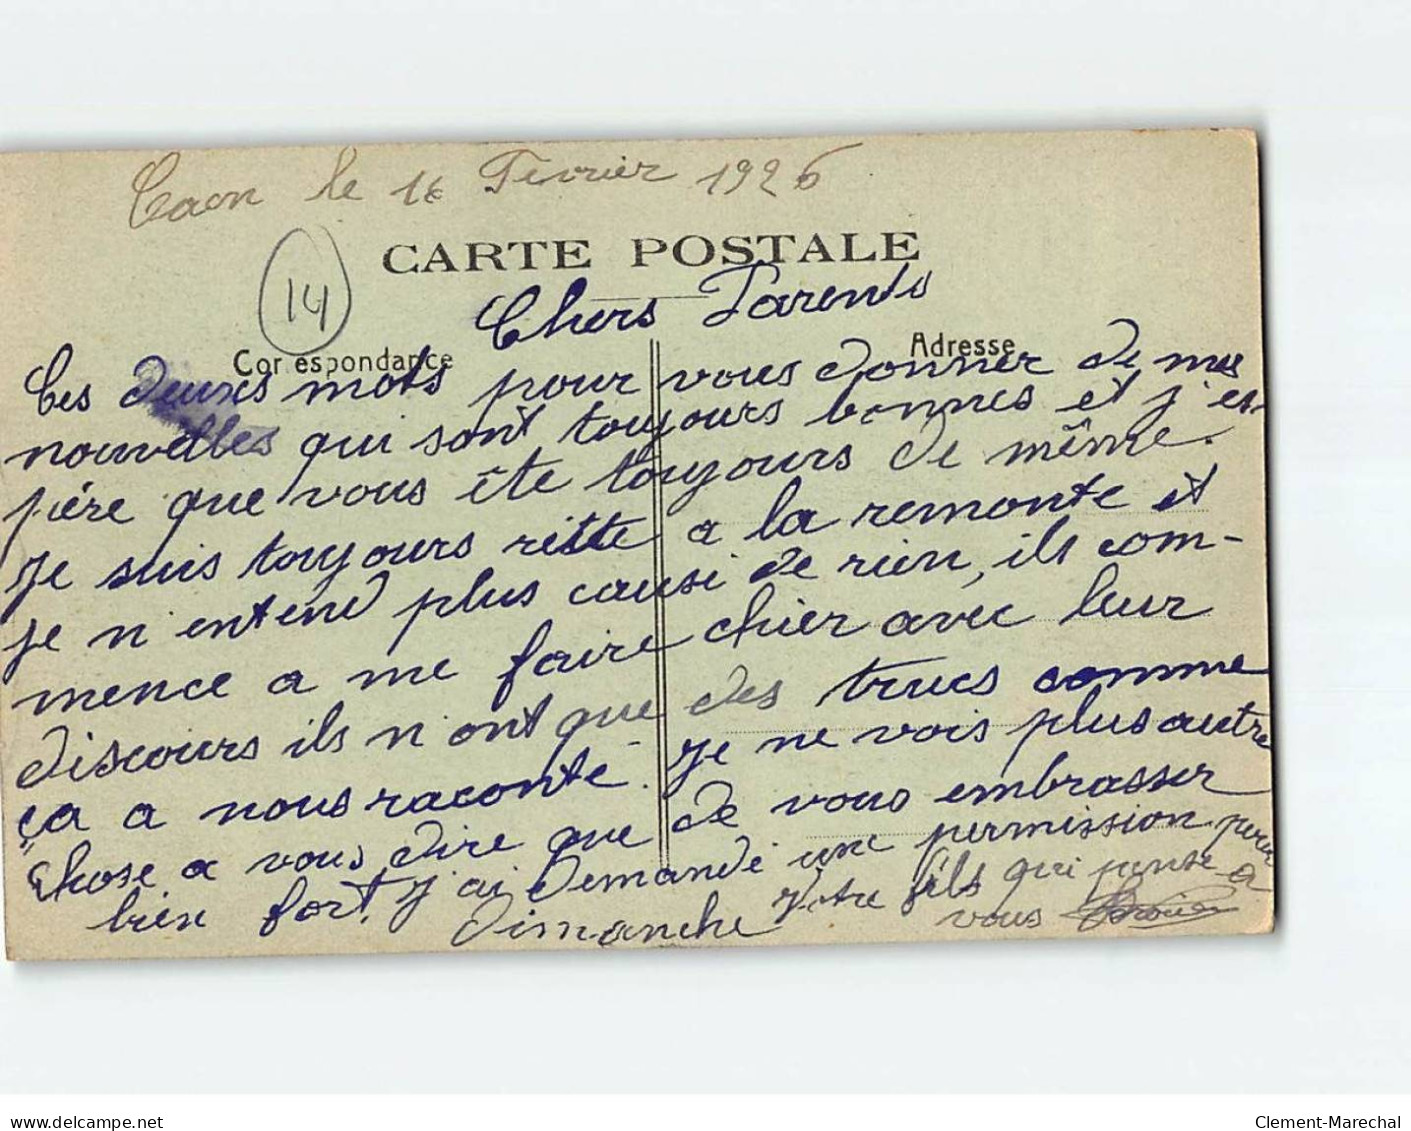 Caen le 16 Fevrier 1926
14
CARTE POSTALE
Chers Parents
Correspondance
Adresse
Ces deuxs mots pour vous donner de mes
nouvelles qui sont toujours bonnes et j'es-
père que vous ête toujours de même.
Je suis toujours à la remonte et
je n'entend plus causé de rien, ils com-
mence a me faire chier avec leur
discours ils n'ont que des trucs comme
ça a nous raconté. Je ne vois plus autre
chose a vous dire que de vous embrasser
bien fort, j'ai demandé une permission pour
Dimanche
Votre fils qui pense a
vous
Clement-Marechal